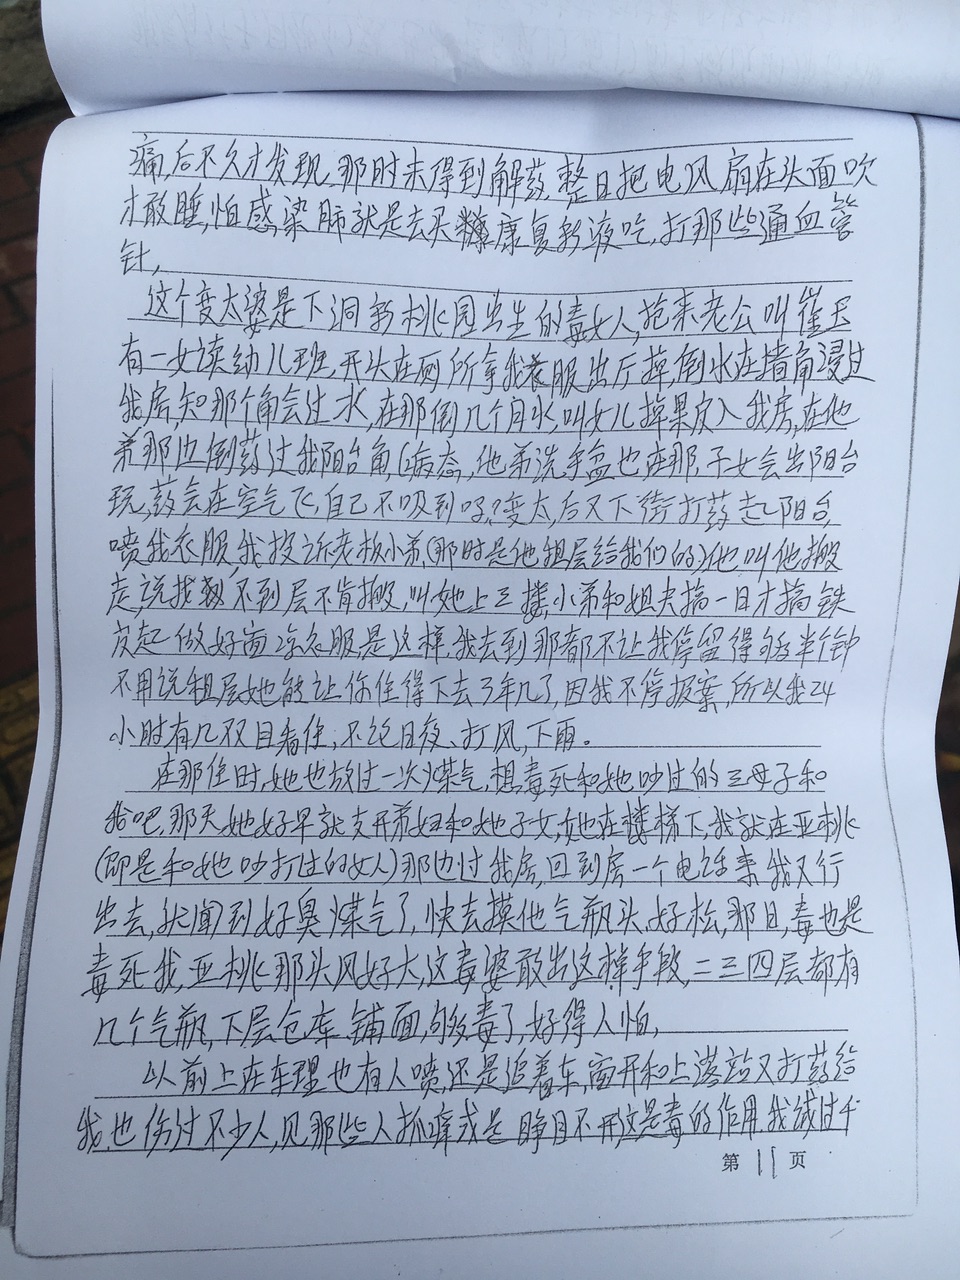 痛,后不久才发现,那时未得到解药,整日把电风扇在头面吹
才敢睡,怕感染肺就是去买 康复新液吃,打那些通血管
针,
这个变太婆是下洞新桃园出生的毒女人,抢来老公叫崔
有一女读幼儿班,开头在厕所拿我衣服出厅 ,倒水在墙角浸过
我房,知那个角会过水,在那倒几个月水,叫女儿掉果皮入我房,在他
弟那边倒药过我阳台角(病态,他弟洗手盆也在那,子女会出阳台
玩,药会在空气飞,自己不吸到吗?变太,后又下街打药起阳台,
喷我衣服,我投诉老板小弟(那时是他租层给我们的)他叫他搬
走,说找 不到层不肯搬,叫她上三楼,小弟和姐夫搞一日才搞铁
皮起做好面凉衣服是这样,我去到那都不让我停留得够半个钟
不用说租层她能让你住得下去3年几了,因我不停报案,所以我24
小时有几双目看住,不论日夜、打风,下雨。
在那住时,她也放过一次煤气,想毒死和她吵过的三母子和
我吧,那天她好早就支开弟妇和她子女, 她在楼梯下,我就在亚桃
(即是和她吵打过的女人)那边过我房,回到房一个电话来我又行
出去,就闻到好臭煤气了,快去摸他气瓶头,好松,那日,毒也是
毒死我,亚桃那头风好大,这毒婆敢出这样手段,二三四层都有
几个气瓶,下层仓库、铺面,够毒了,好得人怕,
以前上在车理也有人喷,还是追着车,离开和上落站又打药给
我,也伤过不少人,见那些人抓痒或是睁目不开这是毒的作用,我 过千
第 11 页